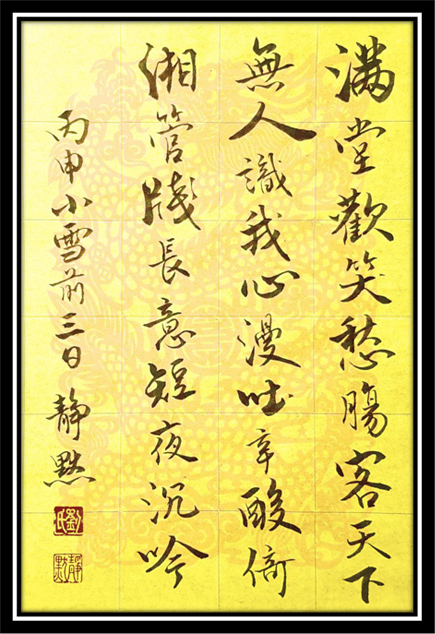 满堂歡笑愁腸客天下
無人識我心漫吐辛酸倚
湘管牋長意短夜沉吟
丙申小雪前三日 靜默
劉氏
靜默